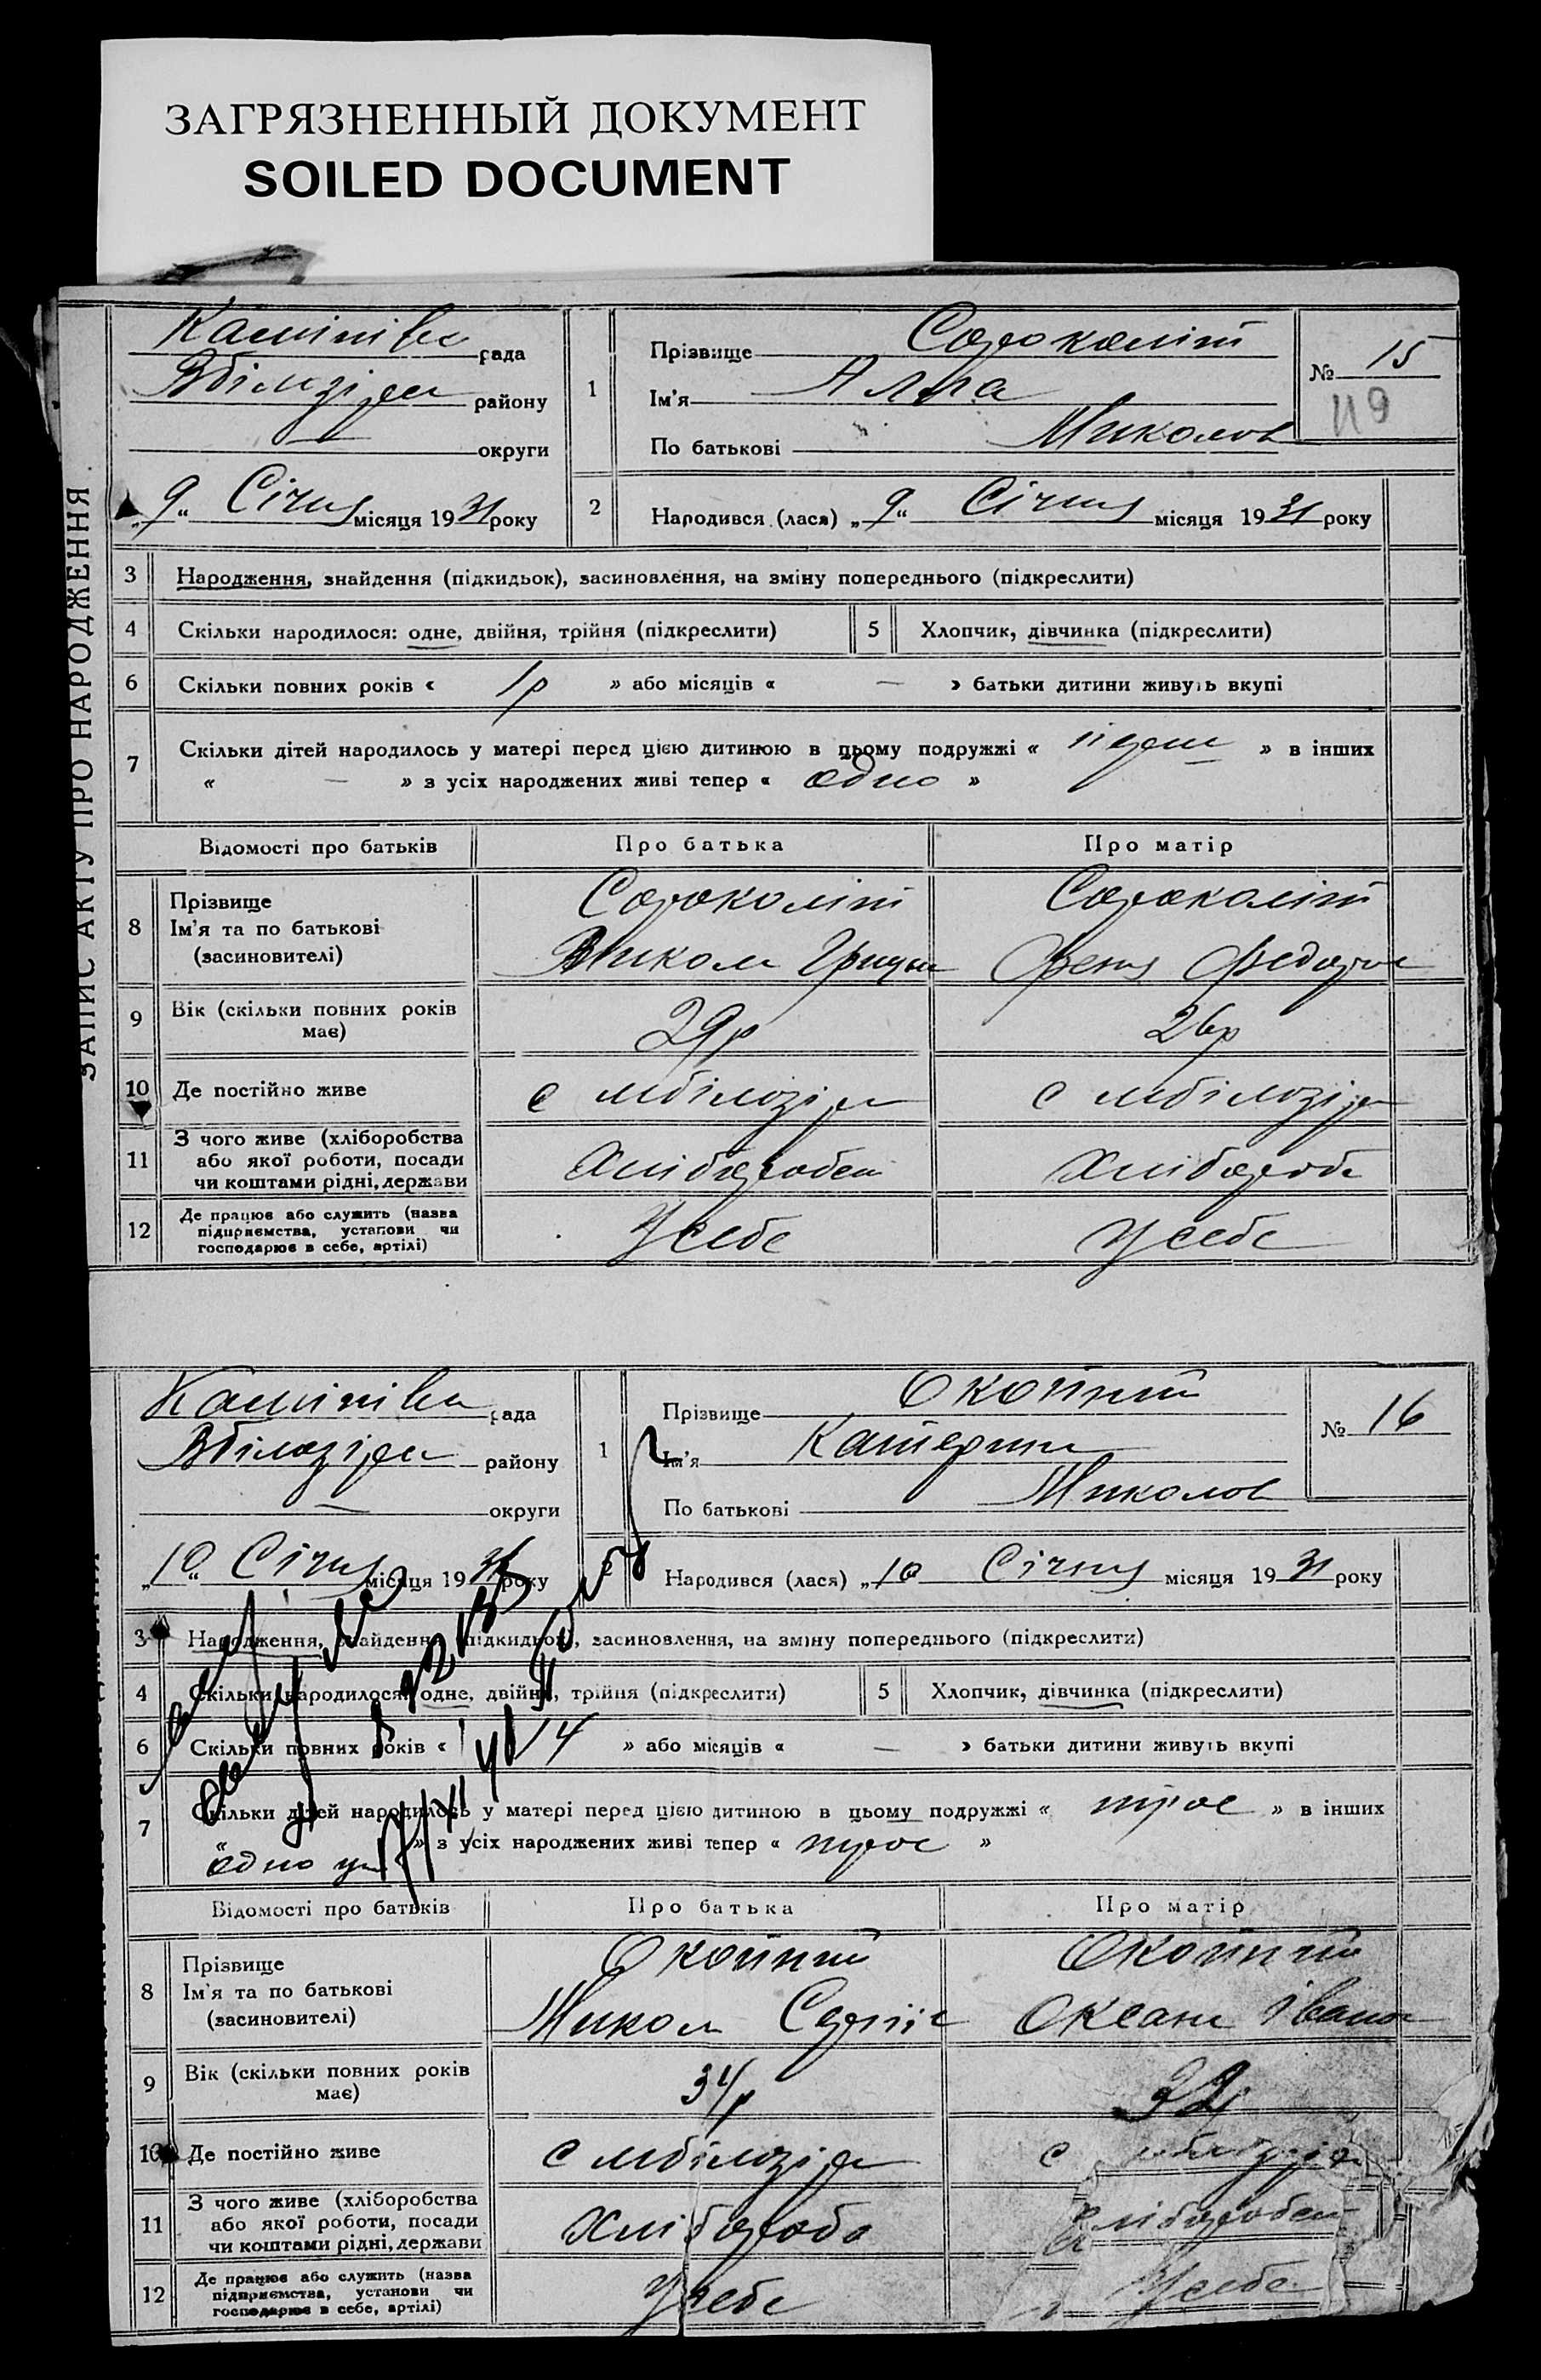 ЗАГРЯЗНЕННЫЙ ДОКУМЕНТ
SOILED DOCUMENT
ЗАПИС АКТУ ПРО НАРОДЖЕННЯ
рада
Вбілозірсь району
— округи
„9“ Січня місяця 1931 року
1
Прізвище Сороколіт
Ім'я Алла
По батькові Миколов
№ 15
119
2 Народився (лася) „9“ Січня місяця 1931 року
3 Народження, знайдення (підкидьок), засиновлення, на зміну попереднього (підкреслити)
4 Скільки народилося: одне, двійня, трійня (підкреслити) 5 Хлопчик, дівчинка (підкреслити)
6 Скільки повних років « 1р » або місяців « — » батьки дитини живуть вкупі
7 Скільки дітей народилось у матері перед цією дитиною в цьому подружжі « » в інших
« — » з усіх народжених живі тепер « одно »
Відомості про батьків Про батька Про матір
8 Прізвище Сороколіт Сороколіт
Ім'я та по батькові
(засиновителі) Микола Грицьк Феня Федоров
9 Вік (скільки повних років має) 29р 26р
10 Де постійно живе с мбілозіря с мбілозіря
11 З чого живе (хліборобства або якої роботи, посади чи коштами рідні, держави Хлібороб Хлібороб
12 Де працює або служить (назва підприємства, установи чи господарює в себе, артілі) У себе У себе
рада
Вбілозірсь району
— округи
„10“ Січня місяця 1931 року
1
Прізвище Окопний
Ім'я Катерина
По батькові Миколов
№ 16
2 Народився (лася) „10 Січня місяця 1931 року
3 Народження, знайдення (підкидьок), засиновлення, на зміну попереднього (підкреслити)
4 Скільки народилося: одне, двійня, трійня (підкреслити) 5 Хлопчик, дівчинка (підкреслити)
6 Скільки повних років « 14 » або місяців « — » батьки дитини живуть вкупі
7 Скільки дітей народилось у матері перед цією дитиною в цьому подружжі « троє » в інших
« » з усіх народжених живі тепер « троє »
одно
Відомості про батьків Про батька Про матір
8 Прізвище Окопний Окопний
Ім'я та по батькові
(засиновителі) Микола Сергіє Оксана Іванов
9 Вік (скільки повних років має) 34р 32
10 Де постійно живе с мбілозіря с
11 З чого живе (хліборобства або якої роботи, посади чи коштами рідні, держави Хлібороб Хлібороб
12 Де працює або служить (назва підприємства, установи чи господарює в себе, артілі) У себе У себе